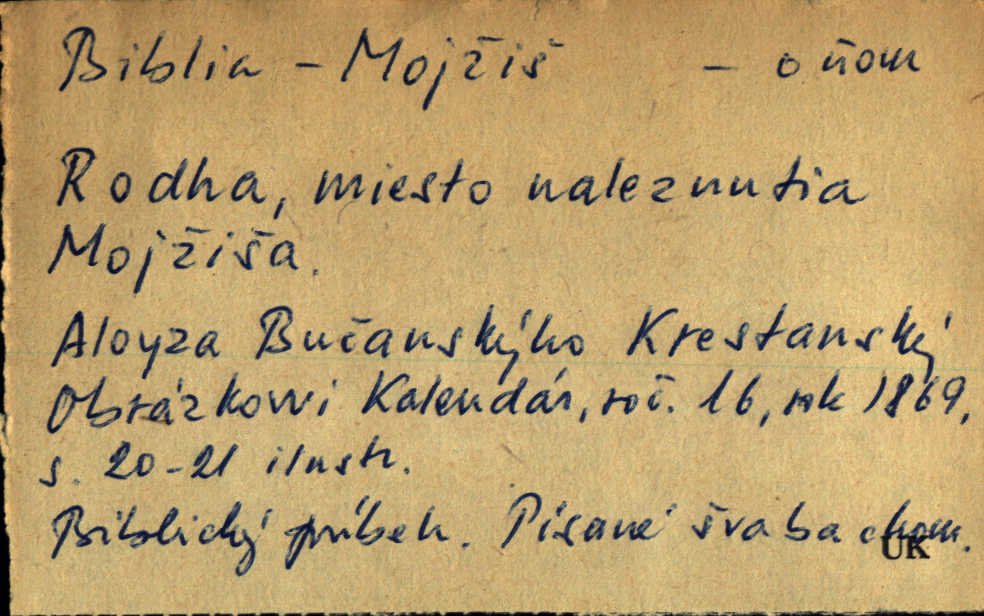 Biblia - Mojžiš - o ňom
Rodha, miesto naleznutia
Mojžiša.
Aloyza Bučanskýho Krestanský
Obrázkowi Kalendár, roč. 16, rok 1869,
s. 20-21 ilustr.
Biblický príbeh. Písané švabachom.
UK